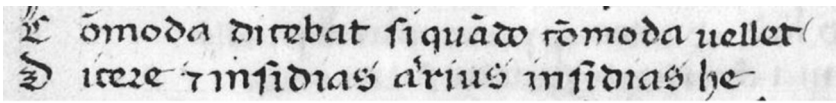 C ōmoda dicebat ſi quādo cōmoda uellet
D icere ⁊ inſidias a'rius inſidias he